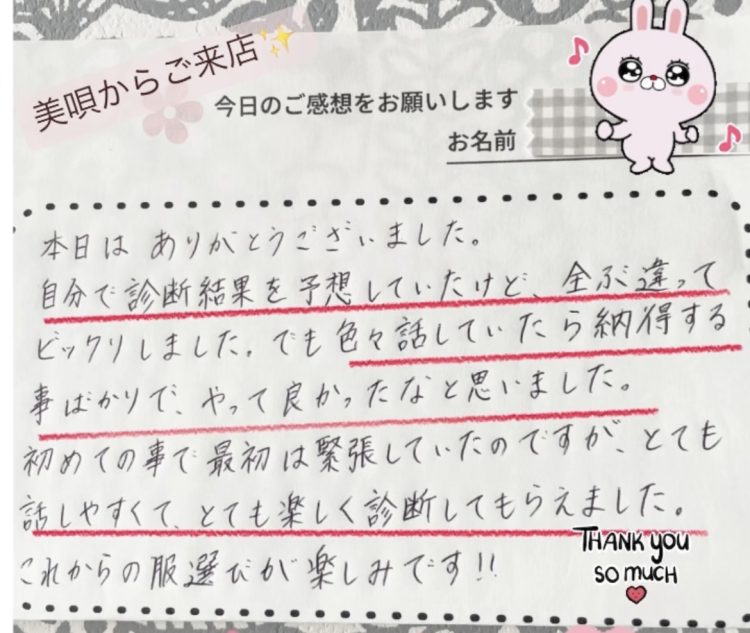 美唄からご来店✨
今日のご感想をお願いします
お名前
本日は ありがとうございました。
自分で診断結果を予想していたけど、全ぶ違って
ビックリしました。でも色々話していたら納得する
事ばかりで、やって良かったなと思いました。
初めての事で最初は緊張していたのですが、とても
話しやすくて、とても楽しく診断してもらえました。
これからの服選びが楽しみです!!
THANK YOU
SO MUCH